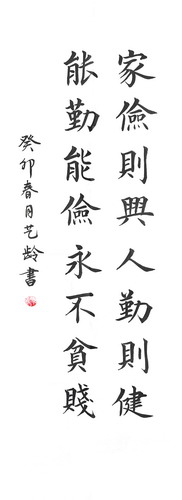 家儉則興人勤則健
能勤能儉永不貧賤
癸卯春月艺龄書